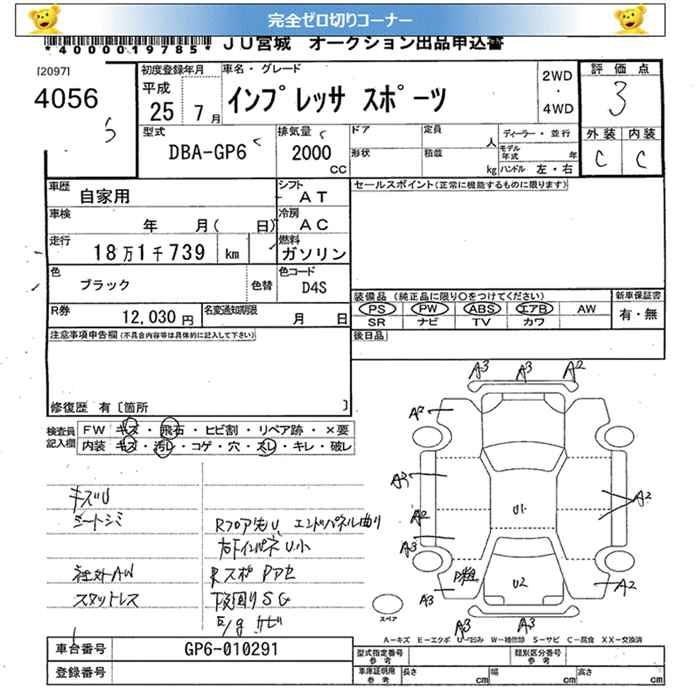 完全ゼロ切りコーナー
*4000019785* JU宮城 オークション出品申込書
[2097]
4056
初度登録年月
平成
25 7月
車名・グレード
インプレッサ スポーツ
2WD
・
4WD
評価点
3
外装 内装
C C
型式
DBA-GP6
排気量
2000
CC
ドア
形状
定員
人
積載
kg
ディーラー・並行
モデル年式 年
ハンドル 左・右
車歴
自家用
シフト
AT
車検
年 月( 日)
冷房
AC
走行
18万1千739 km
燃料
ガソリン
色
ブラック
色替
色コード
D4S
R券
12,030円
名変通知期限
月 日
セールスポイント(正常に機能するものに限ります)
装備品 (純正品に限り○をつけてください)
PS PW ABS エアB AW
SR ナビ TV カワ
新車保証書
有・無
後日品
注意事項申告欄(不具合内容等は具体的に記入して下さい)
修復歴 有〔箇所 〕
検査員記入欄
FW キズ・飛石・ヒビ割・リペア跡・×要
内装 キズ・汚レ・コゲ・穴・スレ・キレ・破レ
キズU
シートシミ
社外AW
スタットレス
Rフロア先U、エンドパネル曲り
右下インパネU小
Rスポ Pアセ
下廻りSG
E/g サビ
A3 A3 A2
A2
A3
A2
A3
A2
U1
P粗
U2
A2
A3
A3
スペア
A-キズ E-エクボ U-凹み W-補修跡 S-サビ C-腐食 XX-交換済
車台番号
GP6-010291
登録番号
型式指定番号
参考
類別区分番号
参考
車庫証明用
参考
長さ cm
幅 cm
高さ cm